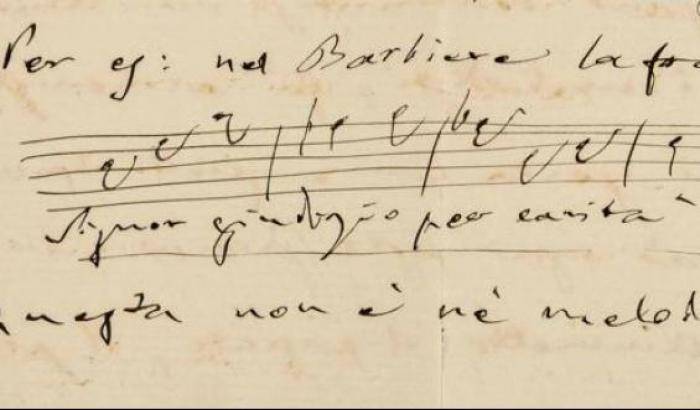 Per es: nel Barbiere la fra
Signor giudizio per carità
questa non è nè melod